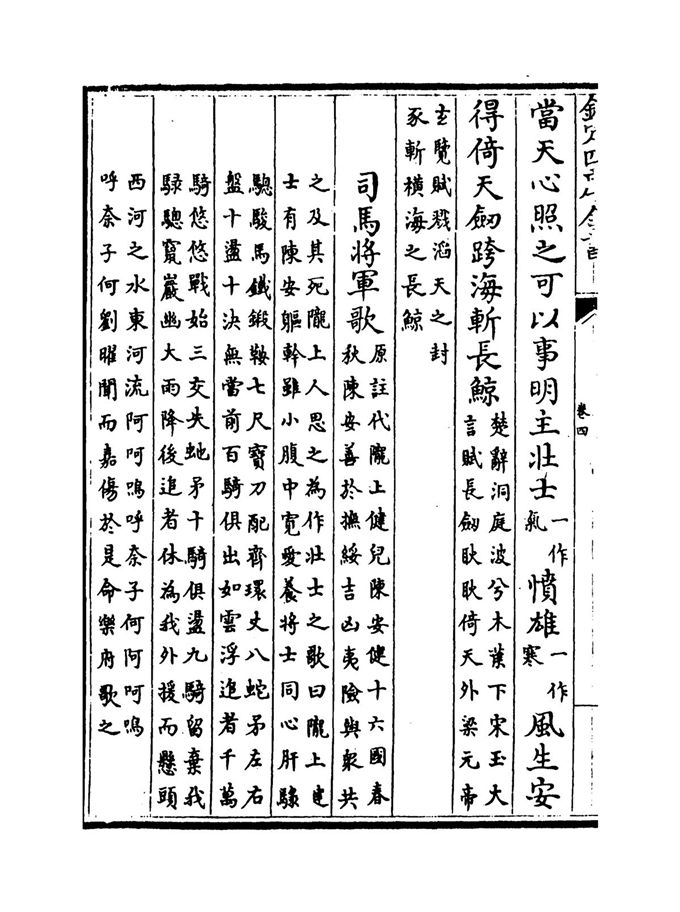 欽定四庫全書
卷四
當天心照之可以事明主壯士一作氣憤雄一作寒風生安
得倚天劒跨海斬長鯨楚辭洞庭波兮木葉下宋玉大
言賦長劒耿耿倚天外梁元帝
玄覽賦戮滔天之封
豕斬橫海之長鯨
司馬將軍歌原註代隴上健兒陳安健十六國春
秋陳安善於撫綏吉凶夷險與衆共
之及其死隴上人思之為作壯士之歌曰隴上健
士有陳安軀幹雖小腹中寛愛養將士同心肝騄
驄駿馬鐵鍜鞍七尺寶刀配齊環丈八蛇矛左右
盤十盪十決無當前百騎俱出如雲浮追者千萬
騎悠悠戰始三交失虵矛十騎俱盪九騎留棄我
騄驄竄巖幽大雨降後追者休為我外援而懸頭
西河之水東河流阿呵嗚呼奈子何阿呵嗚
呼奈子何劉曜聞而嘉傷於是命樂府歌之